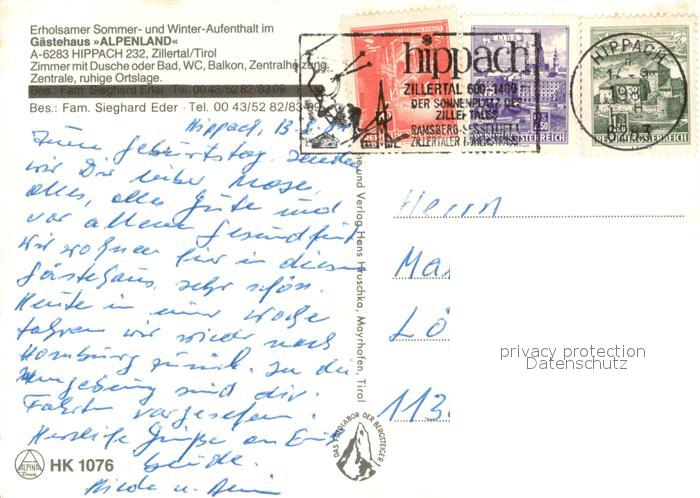 Erholsamer Sommer- und Winter-Aufenthalt im
Gästehaus »ALPENLAND«
A-6283 HIPPACH 232, Zillertal/Tirol
Zimmer mit Dusche oder Bad, WC, Balkon, Zentralheizung,
Zentrale, ruhige Ortslage.
Bes.: Fam. Sieghard Eder · Tel. 00 43/52 82/83 09
Bes.: Fam. Sieghard Eder · Tel. 00 43/52 82/83 09
hippach
ZILLERTAL 600-1400
DER SONNENPLATZ DES
ZILLERTALES
RAMSBERG-SESSELLIFT
ZILLERTALER HÖHENSTRASSE
LINZ
REPUBLIK ÖSTERREICH
HIPPACH
6283
Hippach, 13.
Zum Geburtstag senden
wir Dir lieber
alles, alles Gute und
vor allem Gesundheit
wir wohnen hier in diesem
Gästehaus sehr schön.
Heute in einer Woche
fahren wir wieder nach
Homburg zurück. In die
Umgebung sind div.
Fahrten vorgesehen.
Herzliche Grüße an Euch
beide.
Hilde u.
Herrn
Ma
Lö
113
und Verlag Hans Hruschka, Mayrhofen, Tirol
DAS FOTOLABOR DER BERGSTEIGER
ALPINA
Druck
HK 1076
privacy protection
Datenschutz